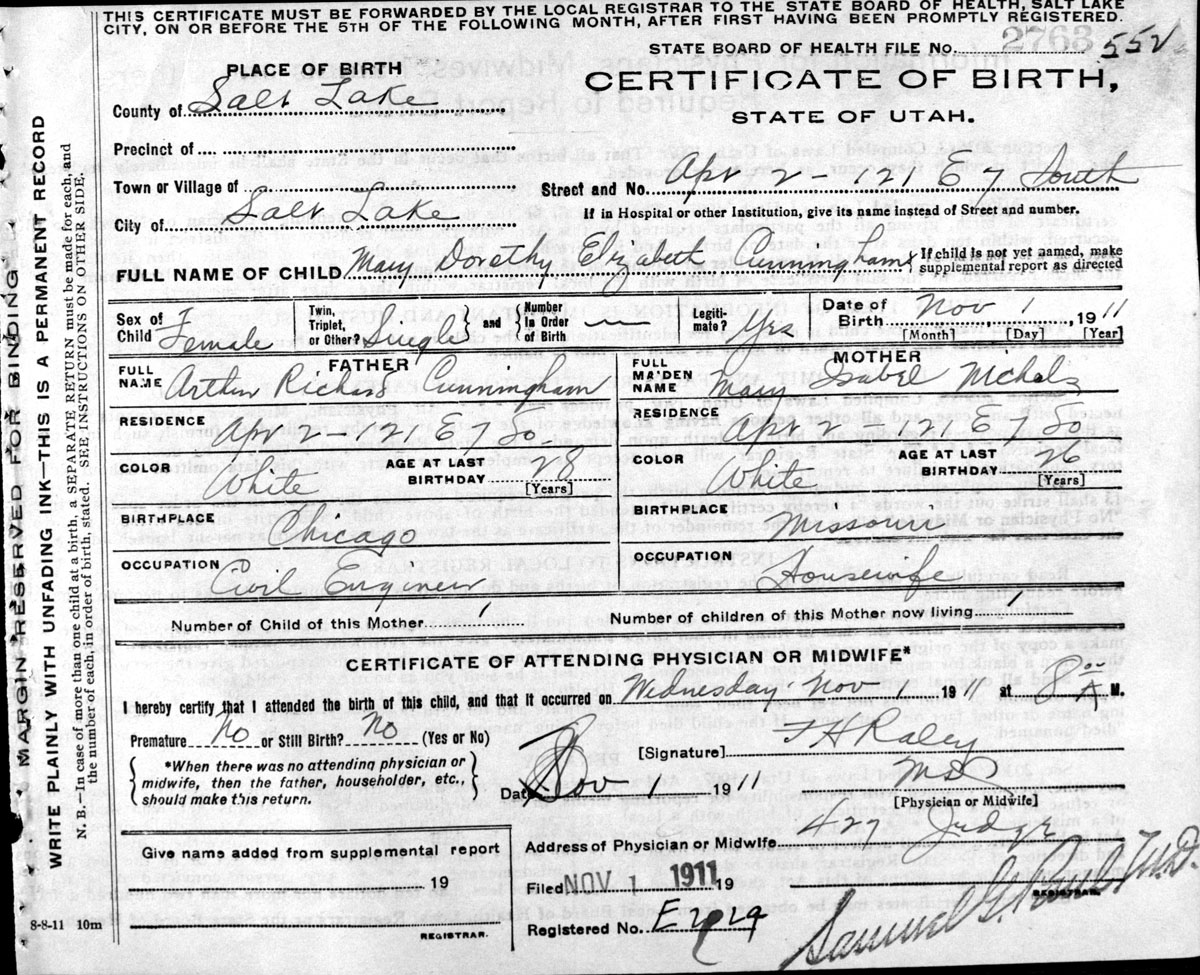 THIS CERTIFICATE MUST BE FORWARDED BY THE LOCAL REGISTRAR TO THE STATE BOARD OF HEALTH, SALT LAKE
CITY, ON OR BEFORE THE 5TH OF THE FOLLOWING MONTH, AFTER FIRST HAVING BEEN PROMPTLY REGISTERED.
STATE BOARD OF HEALTH FILE No. 2763 552
PLACE OF BIRTH
CERTIFICATE OF BIRTH,
STATE OF UTAH.
County of Salt Lake
Precinct of
Town or Village of
Street and No. Apr 2 - 121 E 7 South
City of Salt Lake
If in Hospital or other Institution, give its name instead of Street and number.
FULL NAME OF CHILD Mary Dorothy Elizabeth Cunningham
If child is not yet named, make supplemental report as directed
Sex of Child Female
Twin, Triplet, or Other? Single
and
Number in Order of Birth
Legitimate? Yes
Date of Birth Nov 1, 1911
[Month] [Day] [Year]
FATHER
FULL NAME Arthur Richard Cunningham
RESIDENCE Apr 2 - 121 E 7 So
COLOR White
AGE AT LAST BIRTHDAY 28
[Years]
BIRTHPLACE Chicago
OCCUPATION Civil Engineer
MOTHER
FULL MAIDEN NAME Mary Isabel Nichols
RESIDENCE Apr 2 121 E 7 So
COLOR White
AGE AT LAST BIRTHDAY 26
[Years]
BIRTHPLACE Missouri
OCCUPATION Housewife
Number of Child of this Mother 1
Number of children of this Mother now living 1
CERTIFICATE OF ATTENDING PHYSICIAN OR MIDWIFE*
I hereby certify that I attended the birth of this child, and that it occurred on Wednesday Nov 1 1911 at 8 00 A M.
Premature No or Still Birth? No (Yes or No)
*When there was no attending physician or
midwife, then the father, householder, etc.,
should make this return.
[Signature] F A Raley
MD
[Physician or Midwife]
Date Nov 1 1911
Give name added from supplemental report
19
REGISTRAR.
Address of Physician or Midwife 427 Judge
Filed NOV 1 1911 19
Registered No.
REGISTRAR.
8-8-11 10m
MARGIN RESERVED FOR BINDING
WRITE PLAINLY WITH UNFADING INK—THIS IS A PERMANENT RECORD
N. B.—In case of more than one child at a birth, a SEPARATE RETURN must be made for each, and
the number of each, in order of birth, stated. SEE INSTRUCTIONS ON OTHER SIDE.